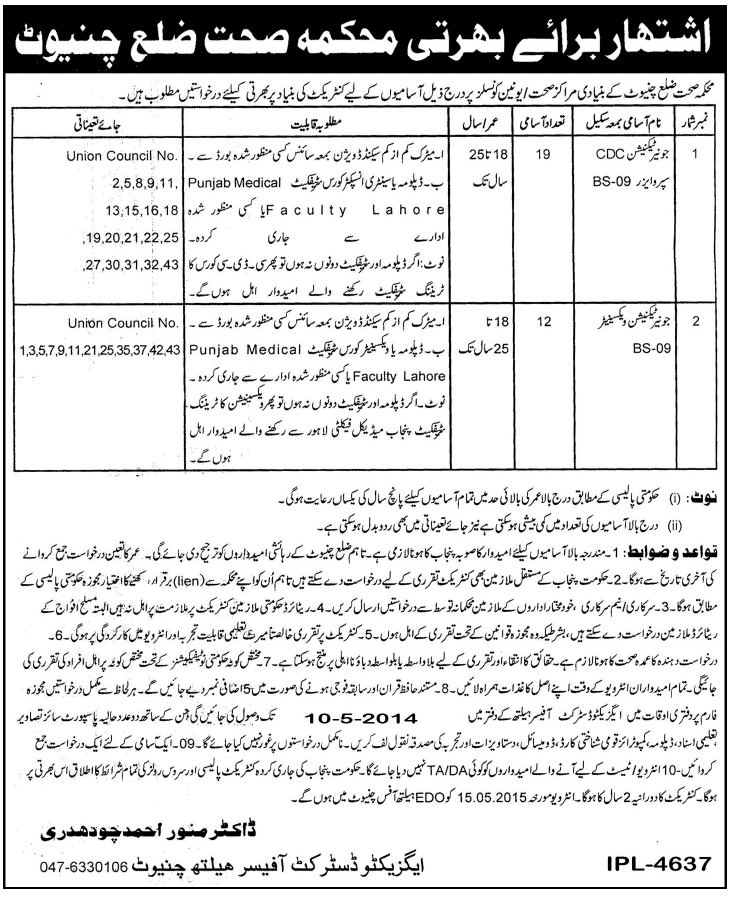 اشتہار برائے بھرتی محکمہ صحت ضلع چنیوٹ
محکمہ صحت ضلع چنیوٹ کے بنیادی مراکز صحت/یونین کونسلز پر درج ذیل آسامیوں کے لیے کنٹریکٹ کی بنیاد پر بھرتی کیلئے درخواستیں مطلوب ہیں۔
نمبر شمار
نام آسامی بمعہ سکیل
تعداد آسامی
عمر/سال
مطلوبہ قابلیت
جائے تعیناتی
1
جونیئر ٹیکنیشن CDC
سپروایزر BS-09
19
18 تا 25
سال تک
ا۔ میٹرک کم از کم سیکنڈ ڈویژن بمعہ سائنس کسی منظور شدہ بورڈ سے ۔
ب۔ ڈپلومہ یا سینٹری انسپکٹر کورس سٹیفکیٹ Punjab Medical
Faculty Lahore یا کسی منظور شدہ
ادارے سے جاری کردہ۔
نوٹ: اگر ڈپلومہ اور سٹیفکیٹ دونوں نہ ہوں تو پھر سی۔ ڈی۔ سی کورس کا
ٹریننگ سٹیفکیٹ رکھنے والے امیدوار اہل ہوں گے۔
Union Council No.
2,5,8,9,11,
13,15,16,18
,19,20,21,22,25
,27,30,31,32,43
2
جونیئر ٹیکنیشن ویکسینیٹر
BS-09
12
18 تا
25 سال تک
ا۔ میٹرک کم از کم سیکنڈ ڈویژن بمعہ سائنس کسی منظور شدہ بورڈ سے ۔
ب۔ ڈپلومہ یا ویکسینیٹر کورس سٹیفکیٹ Punjab Medical
Faculty Lahore یا کسی منظور شدہ ادارے سے جاری کردہ ۔
نوٹ۔ اگر ڈپلومہ اور سٹیفکیٹ دونوں نہ ہوں تو پھر ویکسینیشن کا ٹریننگ
سٹیفکیٹ پنجاب میڈیکل فیکلٹی لاہور سے رکھنے والے امیدوار اہل
ہوں گے۔
Union Council No.
1,3,5,7,9,11,21,25,35,37,42,43
نوٹ: (i) حکومتی پالیسی کے مطابق درج بالا عمر کی بالائی حد میں تمام آسامیوں کیلئے پانچ سال کی یکساں رعایت ہوگی۔
(ii) درج بالا آسامیوں کی تعداد میں کمی بیشی ہو سکتی ہے نیز جائے تعیناتی میں بھی ردوبدل ہو سکتی ہے۔
قواعد و ضوابط: 1۔ مندرجہ بالا آسامیوں کیلئے امیدوار کا صوبہ پنجاب کا ہونا لازمی ہے۔ تاہم ضلع چنیوٹ کے رہائشی امیدواروں کو ترجیح دی جائے گی۔ عمر کا تعین درخواست جمع کروانے
کی آخری تاریخ سے ہوگا۔ 2۔ حکومت پنجاب کے مستقل ملازمین بھی کنٹریکٹ تقرری کے لیے درخواست دے سکتے ہیں تاہم اُن کو اپنے محکمہ سے (lien) برقرار رکھنے کا اختیار مجوزہ حکومتی پالیسی کے
مطابق ہوگا۔ 3۔ سرکاری/نیم سرکاری، خودمختار اداروں کے ملازمین محکمانہ توسط سے درخواستیں ارسال کریں۔ 4۔ ریٹائرڈ حکومتی ملازمین کنٹریکٹ پر ملازمت پر اہل نہ ہیں البتہ مسلح افواج کے
ریٹائرڈ ملازمین درخواست دے سکتے ہیں، بشرطیکہ وہ مجوزہ قوانین کے تحت تقرری کے اہل ہوں۔ 5۔ کنٹریکٹ پر تقرری خالصتاً میرٹ، تعلیمی قابلیت تجربہ اور انٹرویو میں کارکردگی پر ہوگی۔ 6۔
درخواست دہندہ کا عمدہ صحت کا ہونا لازم ہے۔ حقائق کا اخفاء اور تقرری کے لیے بلا واسطہ یا بلواسطہ دباؤ نا اہلی پر منتج ہو سکتا ہے۔ 7۔ مختص کوٹہ حکومتی نوٹیفکیشنز کے تحت مختص کوٹہ پر اہل افراد کی تقرری کی
جائیگی۔ تمام امیدواران انٹرویو کے وقت اپنے اصل کاغذات ہمراہ لائیں۔ 8۔ مستند حافظ قرآن اور سابقہ فوجی ہونے کی صورت میں 5 اضافی نمبر دیے جائیں گے۔ ہر لحاظ سے مکمل درخواستیں مجوزہ
فارم پر دفتری اوقات میں ایگزیکٹو ڈسٹرکٹ آفیسر ہیلتھ کے دفتر میں 10-5-2014 تک وصول کی جائیں گی جن کے ساتھ دو عدد حالیہ پاسپورٹ سائز تصاویر
،تعلیمی اسناد، ڈپلومہ، کمپیوٹرائز قومی شناختی کارڈ، ڈومیسائل، دستاویزات اور تجربہ کی مصدقہ نقول لف کریں۔ نامکمل درخواستوں پر غور نہیں کیا جائے گا۔ 09۔ ایک آسامی کے لئے ایک درخواست جمع
کروائیں۔ 10۔ انٹرویو/ٹیسٹ کے لیے آنے والے امیدواروں کو کوئی TA/DA نہیں دیا جائے گا۔ حکومت پنجاب کی جاری کردہ کنٹریکٹ پالیسی اور سروس رولز کی تمام شرائط کا اطلاق اس بھرتی پر
ہوگا۔ کنٹریکٹ کا دورانیہ 2 سال کا ہوگا۔ انٹرویو مورخہ 15.05.2015 کو EDO ہیلتھ آفس چنیوٹ میں ہوں گے۔
ڈاکٹر منور احمد چودھدری
ایگزیکٹو ڈسٹرکٹ آفیسر ہیلتھ چنیوٹ 047-6330106
IPL-4637